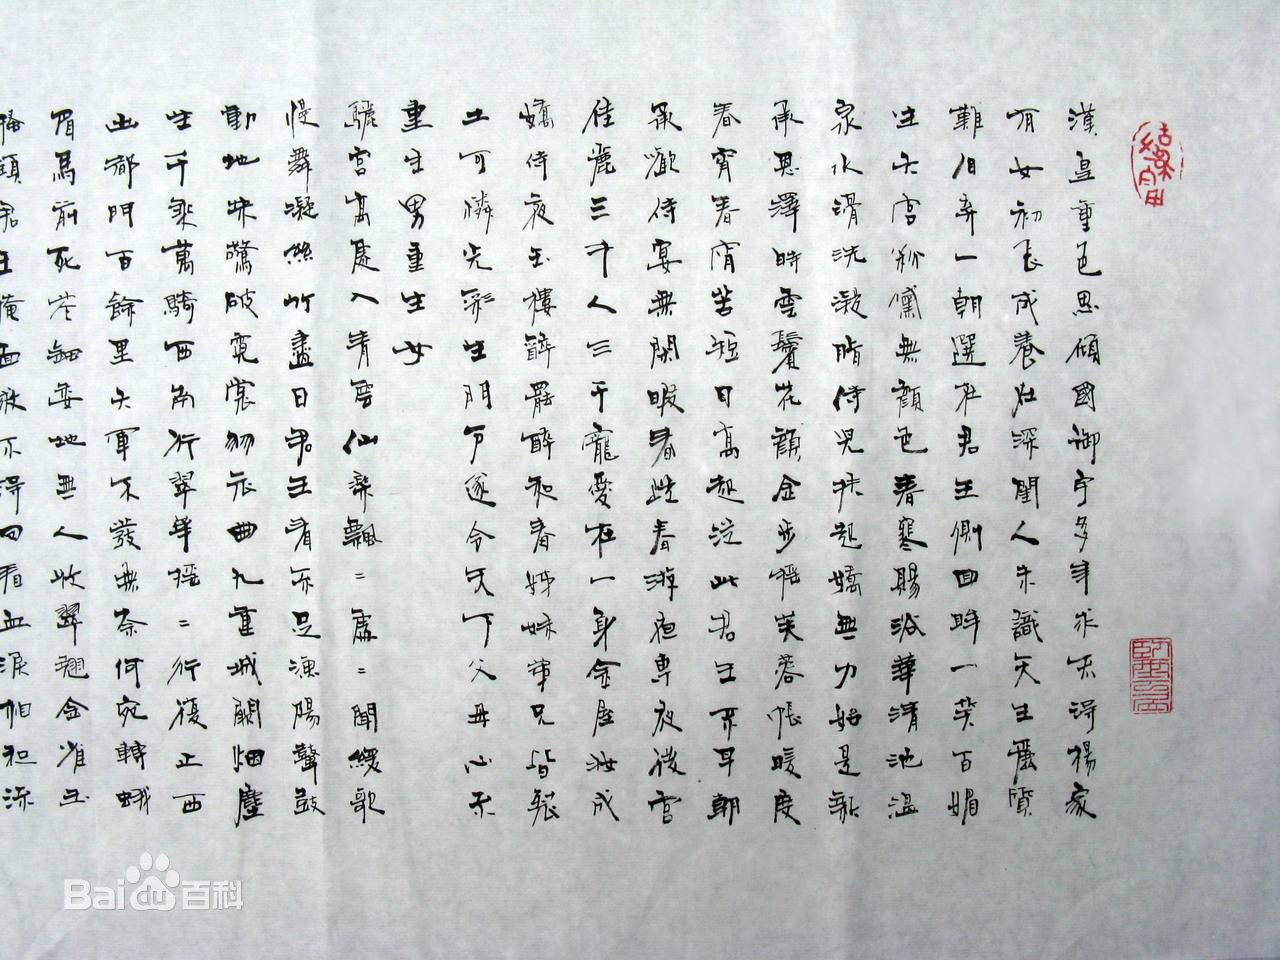 漢皇重色思傾國御宇多年求不得楊家
有女初長成養在深閨人未識天生麗質
難自弃一朝選在君王側回眸一笑百媚
生六宮粉黛無顏色春寒賜浴華清池温
泉水滑洗凝脂侍兒扶起嬌無力始是新
承恩澤時雲鬢花顏金步搖芙蓉帳暖度
春宵春宵苦短日高起從此君王不早朝
承歡侍宴無閑暇春從春游夜專夜後宮
佳麗三千人三千寵愛在一身金屋妝成
嬌侍夜玉樓罷醉和春姊妹弟兄皆裂
土可憐光彩生門戶遂令天下父母心不
重生男重生女
驪宮高處入青雲仙樂飄=處=聞緩歌
慢舞凝絲竹盡日君王看不足漁陽鼙鼓
動地來驚破霓裳羽衣曲九重城闕烟塵
生千乘萬騎西南行翠華搖=行復止西
出都門百餘里六軍不發無奈何宛轉蛾
眉馬前死花鈿委地無人收翠翹金雀玉
搔頭君王掩面救不得回看血淚相和流
Bai百科